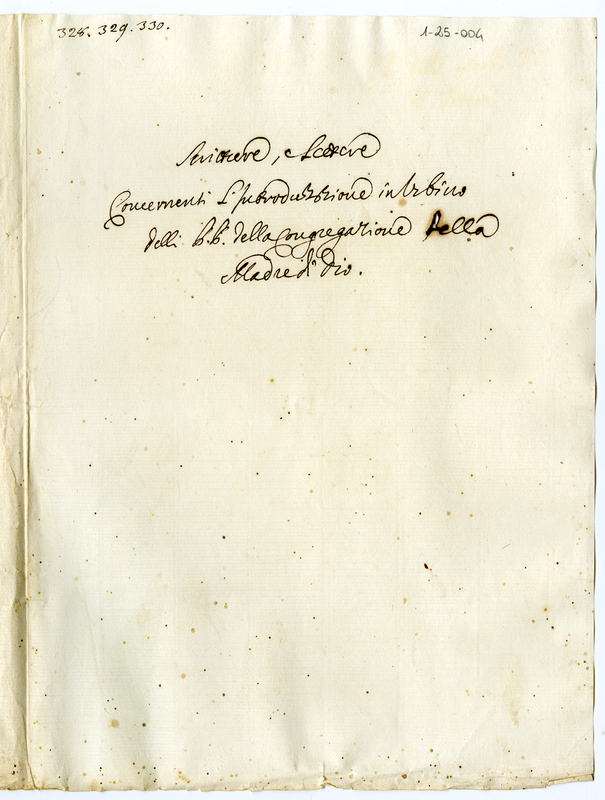 328. 329. 330.
1-25-004
Scritture, e Lettere
Concernenti L'Introduttione in Urbino
delli P.P. della Congregatione della
Madre di Dio.